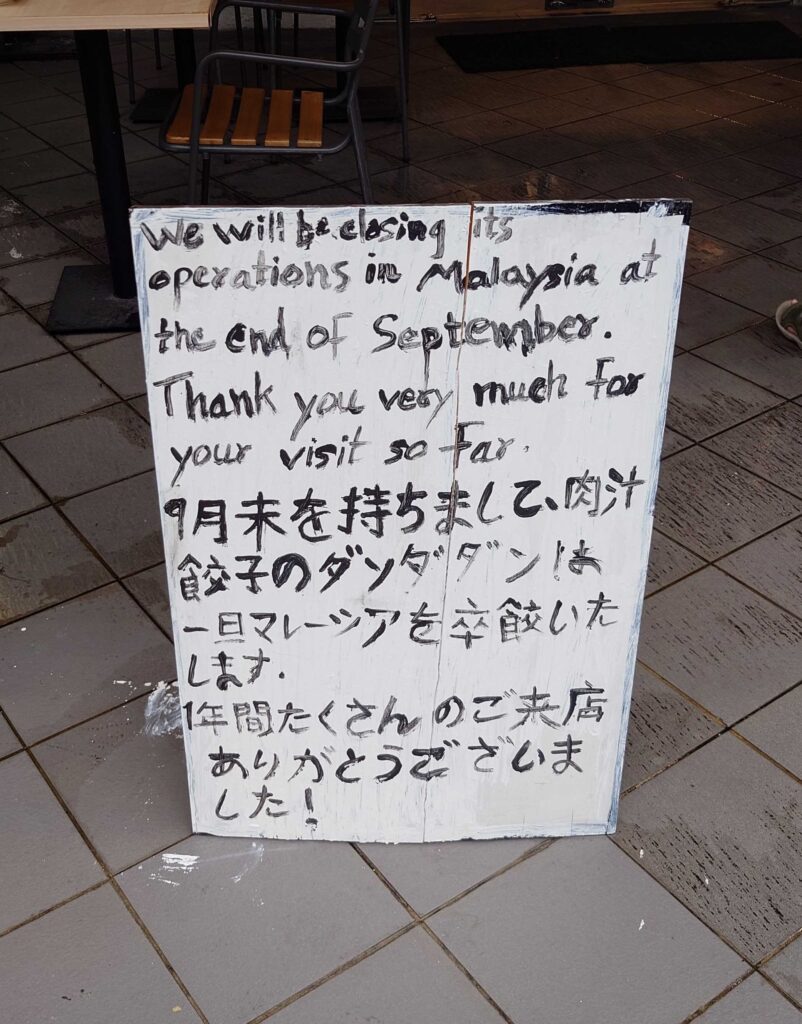 We will be closing its
operations in Malaysia at
the end of September.
Thank you very much for
your visit so far.
9月末を持ちまして、肉汁
餃子のダンダダンは
一旦マレーシアを卒餃いた
します.
1年間たくさんのご来店
ありがとうございま
した!